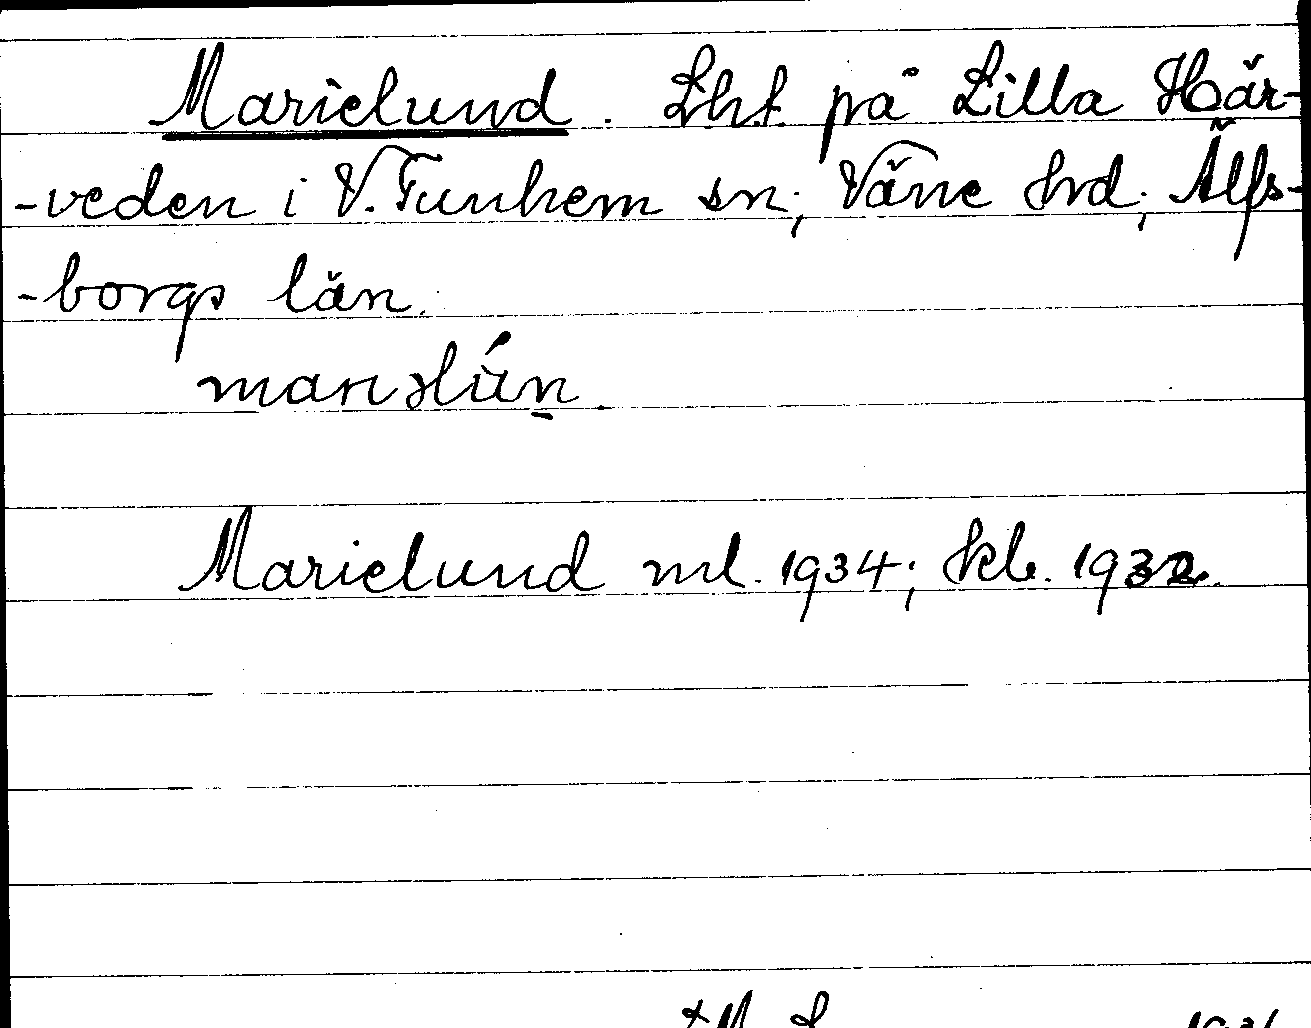 Marielund. Lht. på Lilla Här-
-veden i V. Tunhem sn; Väne hd; Älfs-
-borgs län.
Marielund ml. 1934; kb. 1932.